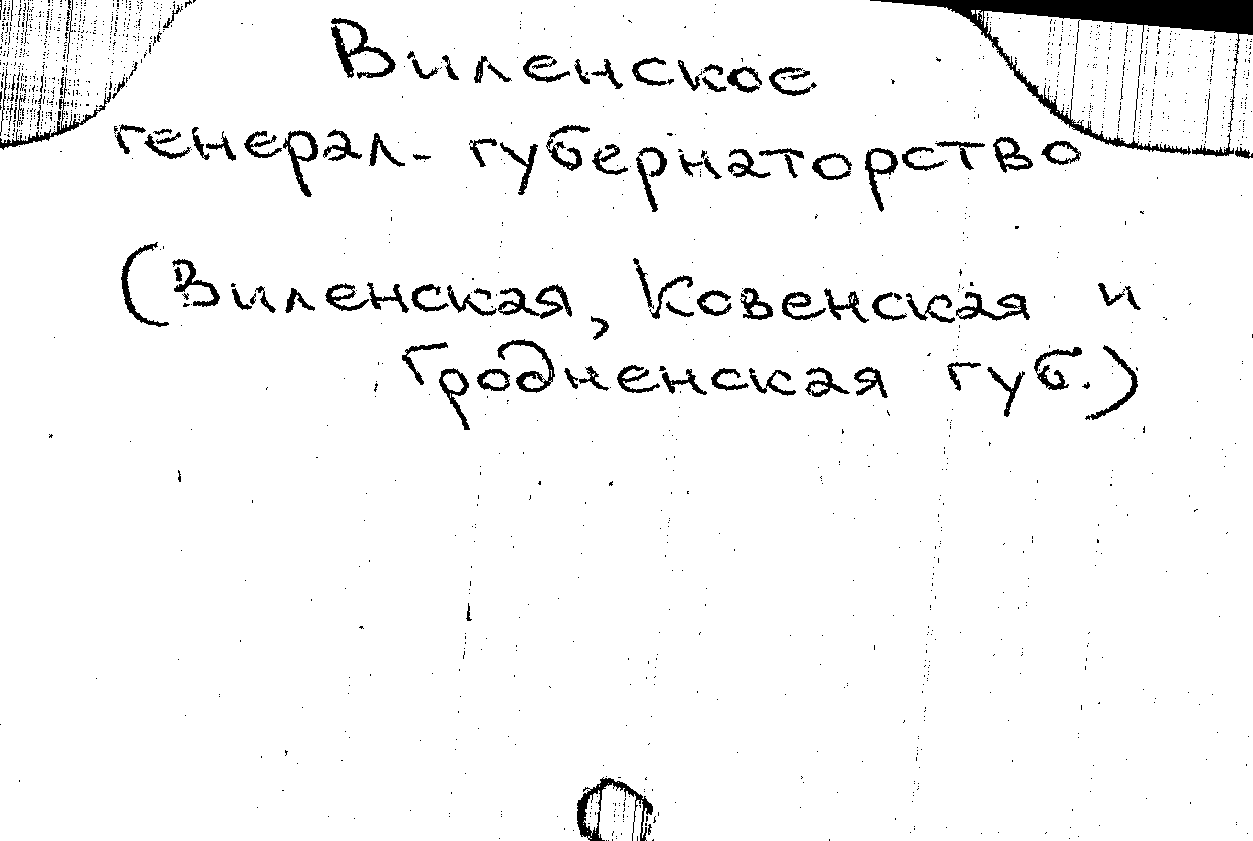 Виленское
генерал-губернаторство
(Виленская, Ковенская и
Гродненская губ.)